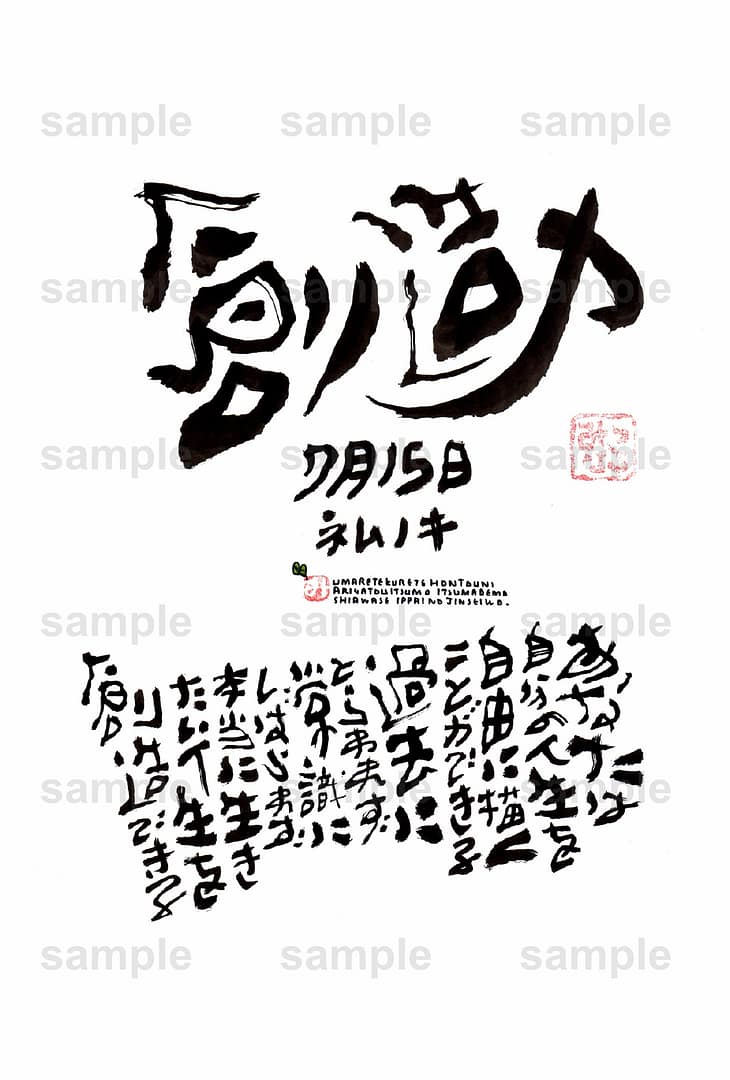 創造力
7月15日
ネムノキ
UMARETEKURETE HONTOUNI
ARIGATOU ITSUMO ITSUMADEMO
SHIAWASE IPPAI NO JINSEI WO.
あなたは
自分の人生を
自由に描く
ことができる
過去に
とらわれず
常識に
しばられず
本当に生き
たい人生を
創造できる
sample sample sample
sample sample sample
sample sample sample
sample sample sample
sample sample sample
sample sample sample